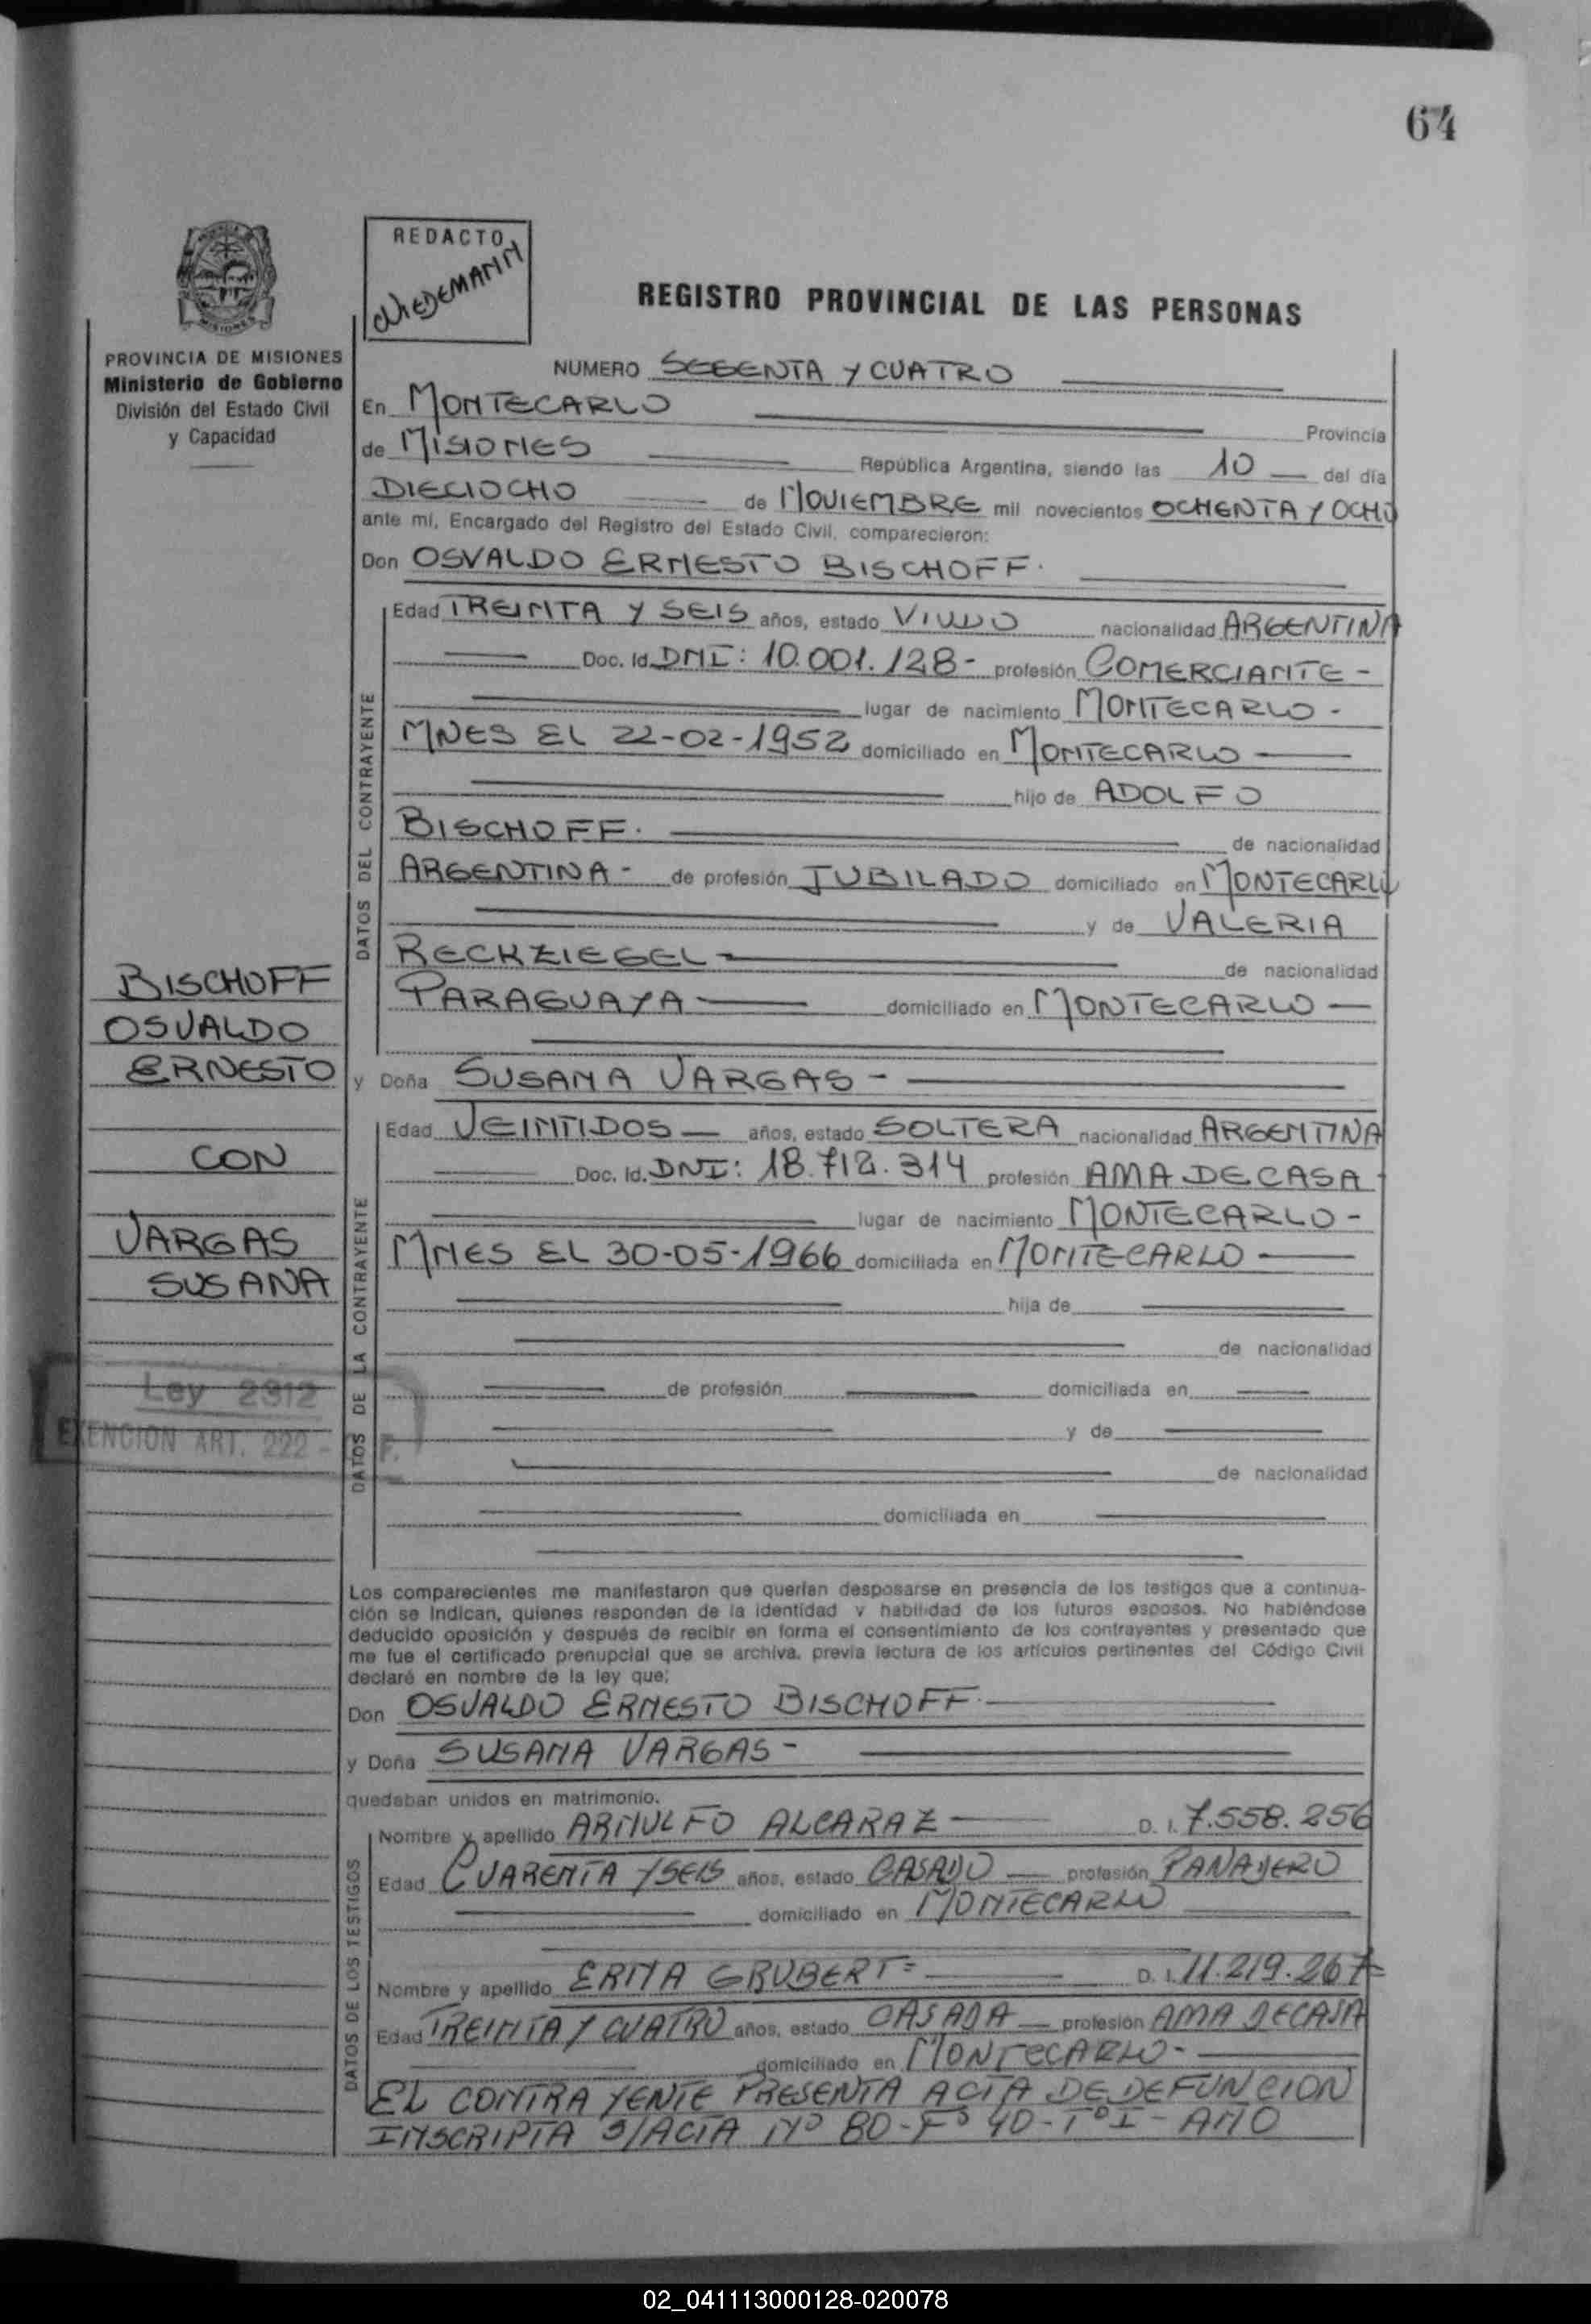 64
REDACTO
WIEDEMANN
REGISTRO PROVINCIAL DE LAS PERSONAS
PROVINCIA DE MISIONES
Ministerio de Gobierno
División del Estado Civil
y Capacidad
NUMERO SESENTA Y CUATRO
En MONTECARLO
Provincia
de MISIONES República Argentina, siendo las 10 del día
DIECIOCHO de NOVIEMBRE mil novecientos OCHENTA Y OCHO
ante mí, Encargado del Registro del Estado Civil, comparecieron:
Don OSVALDO ERNESTO BISCHOFF.
DATOS DEL CONTRAYENTE
Edad TREINTA Y SEIS años, estado VIUDO nacionalidad ARGENTINA
Doc. Id. DNI: 10.001.128- profesión COMERCIANTE -
lugar de nacimiento MONTECARLO -
MNES EL 22-02-1952 domiciliado en MONTECARLO
hijo de ADOLFO
BISCHOFF. de nacionalidad
ARGENTINA - de profesión JUBILADO domiciliado en MONTECARLO
y de VALERIA
RECKZIEGEL- de nacionalidad
PARAGUAYA domiciliado en MONTECARLO
BISCHOFF
OSVALDO
ERNESTO
CON
VARGAS
SUSANA
Ley 2312
EXENCION ART. 222 - F.
y Doña SUSANA VARGAS -
DATOS DE LA CONTRAYENTE
Edad VEINTIDOS años, estado SOLTERA nacionalidad ARGENTINA
Doc. Id. DNI: 18.712.314 profesión AMA DE CASA
lugar de nacimiento MONTECARLO -
MNES EL 30-05-1966 domiciliada en MONTECARLO
hija de
de nacionalidad
de profesión domiciliada en
y de
de nacionalidad
domiciliada en
Los comparecientes me manifestaron que querían desposarse en presencia de los testigos que a continua-
ción se indican, quienes responden de la identidad y habilidad de los futuros esposos. No habiéndose
deducido oposición y después de recibir en forma el consentimiento de los contrayentes y presentado que
me fue el certificado prenupcial que se archiva, previa lectura de los artículos pertinentes del Código Civil
declaré en nombre de la ley que;
Don OSVALDO ERNESTO BISCHOFF.
y Doña SUSANA VARGAS -
quedaban unidos en matrimonio.
DATOS DE LOS TESTIGOS
Nombre y apellido ARNULFO ALCARAZ D. I. 7.558.256
Edad CUARENTA Y SEIS años, estado CASADO profesión PANADERO
domiciliado en MONTECARLO
Nombre y apellido ERNA GRUBERT= D. I. 11.219.267=
Edad TREINTA Y CUATRO años, estado CASADA profesión AMA DE CASA
domiciliado en MONTECARLO-
EL CONTRAYENTE PRESENTA ACTA DE DEFUNCION
INSCRIPTA S/ACTA Nº 80-Fº 40-TºI- AÑO
02_041113000128-020078